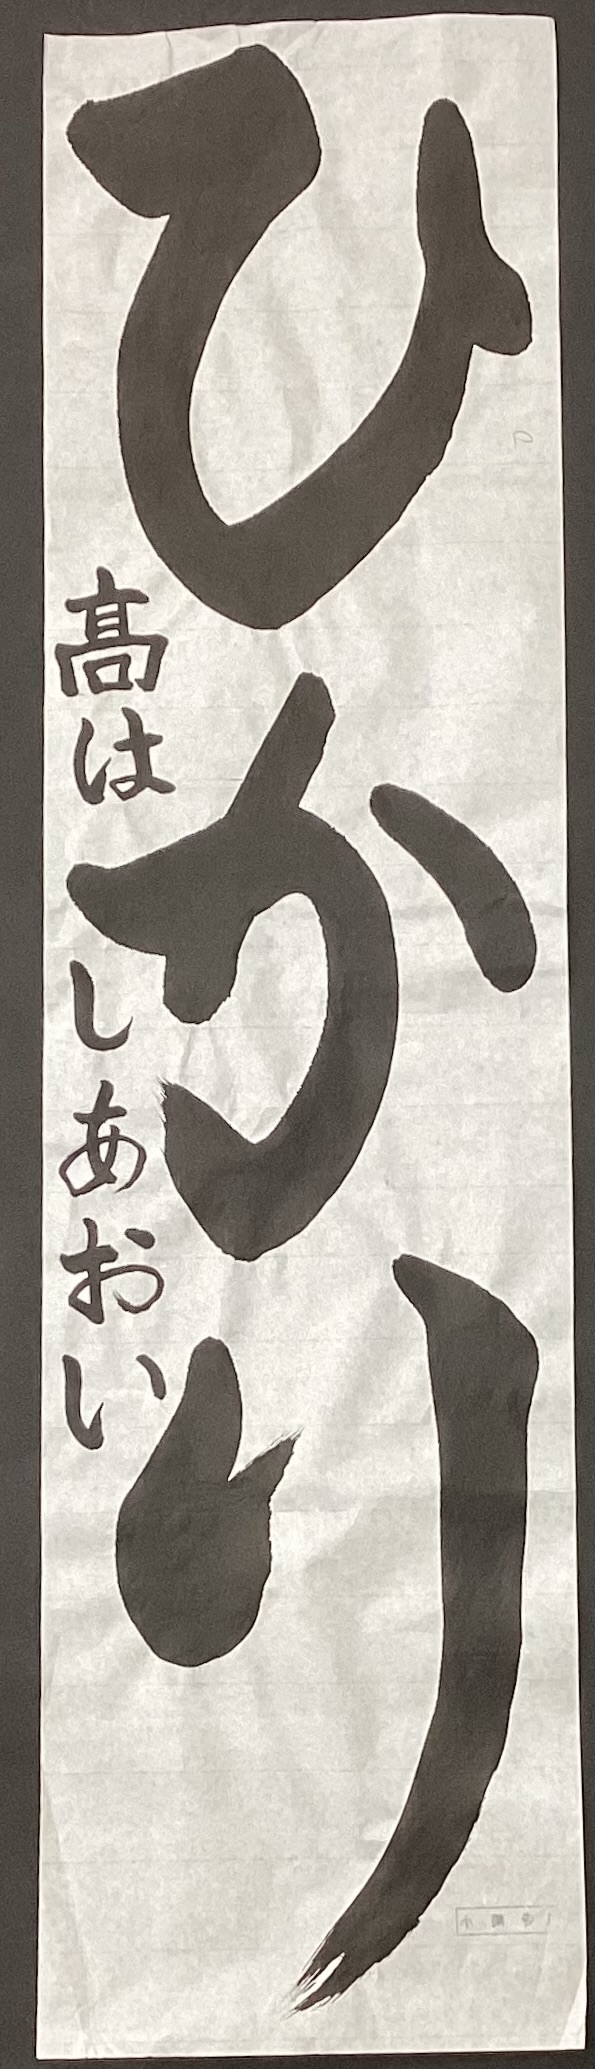 ひかり
髙はしあおい